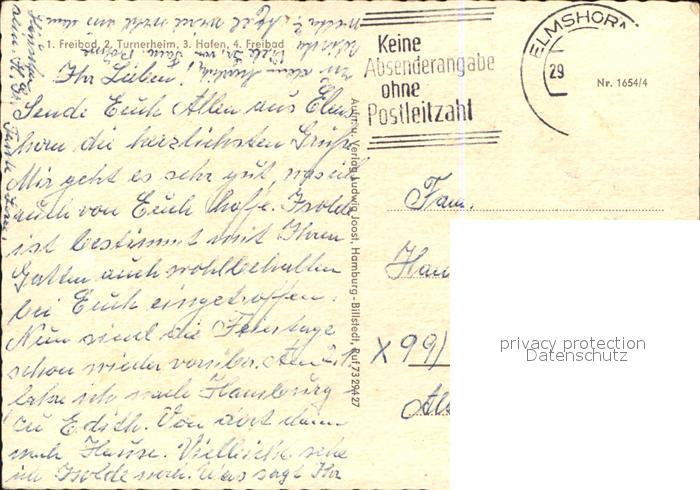 1. Freibad, 2. Turnerheim, 3. Hafen, 4. Freibad
Ihr Lieben!
Sende Euch Allen aus Elms-
horn die herzlichsten Grüße
Mir geht es sehr gut, was ich
auch von Euch hoffe. Isolde
ist bestimmt mit Ihren
Gatten auch wohlbehalten
bei Euch eingetroffen.
Nun sind die Feiertage
schon wieder vorüber. Am
fahre ich nach Hamburg
zu Edith. Von dort dann
nach Hause. Vielleicht sehe
ich Isolde noch. Was sagt Ihr
Aufn. u. Verlag Ludwig Joost, Hamburg-Billstedt, Ruf 7329427
Keine
Absenderangabe
ohne
Postleitzahl
ELMSHORN
29
Nr. 1654/4
Fam.
Han
X 99)
privacy protection
Datenschutz